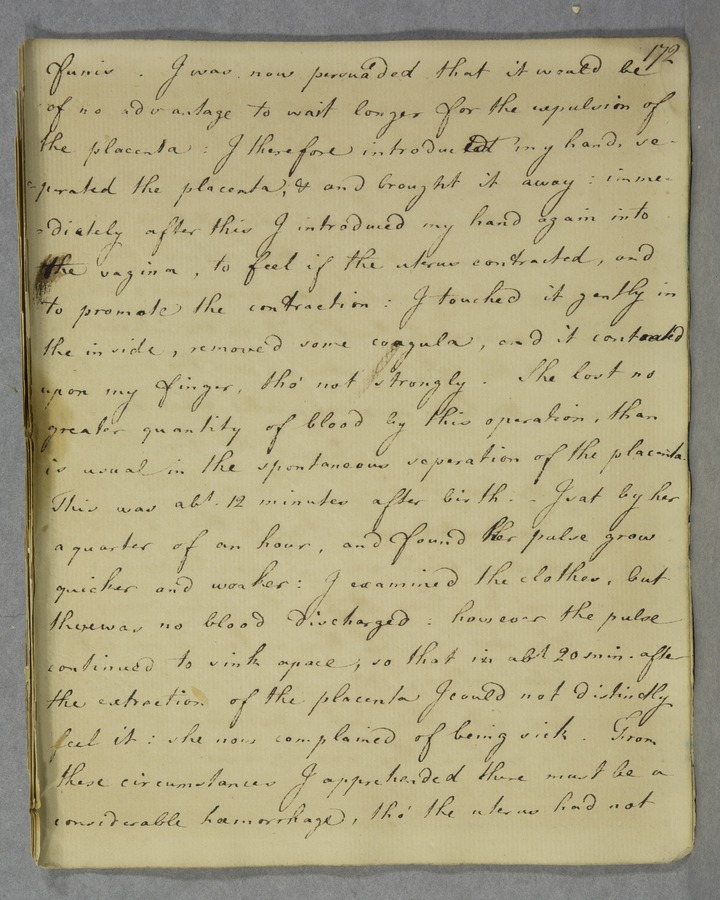 172
funis . I was now persuaded that it would be
of no advantage to wait longer for the expulsion of
the placenta : I therefore introduced my hand, se-
-parated the placenta, & and brought it away : imme-
-diately after this I introduced my hand again into
the vagina, to feel if the uterus contracted, and
to promote the contraction : I touched it gently in
the inside, removed some coagula, and it contracted
upon my finger, tho' not strongly . She lost no
greater quantity of blood by this operation, than
is usual in the spontaneous seperation of the placenta.
This was abt. 12 minutes after birth. - I sat by her
a quarter of an hour, and found her pulse grow
quicker and weaker : I examined the clothes, but
there was no blood discharged : however the pulse
continued to sink apace, so that in abt 20 min. after
the extraction of the placenta I could not distinctly
feel it : she now complained of being sick . From
these circumstances I apprehended there must be a
considerable hæmorrhage, tho' the uterus had not